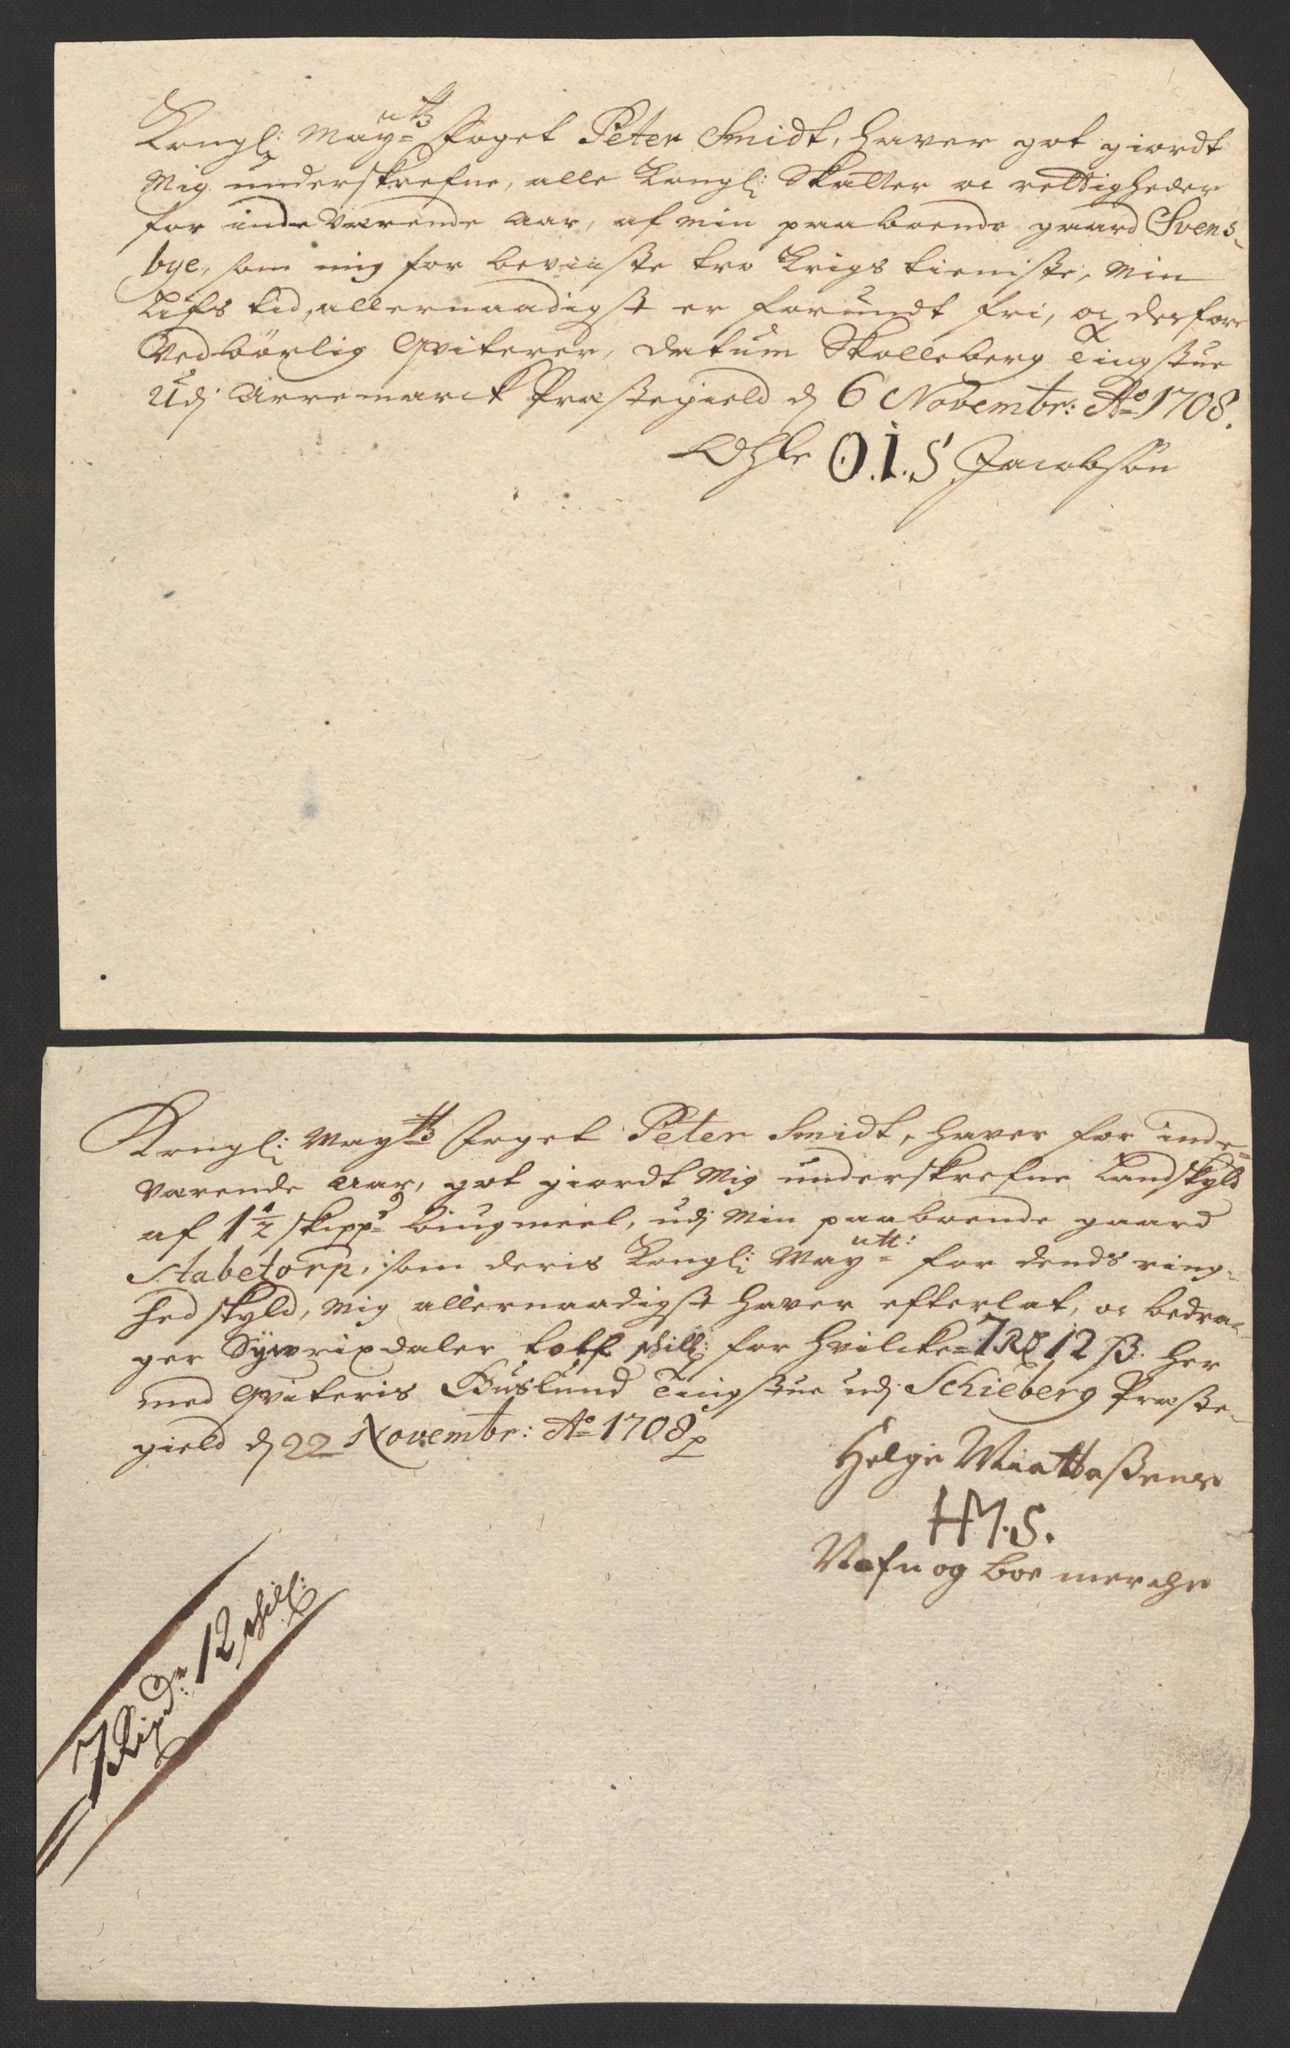 Kongl: May:tts Foget Peter Smidt, haver got giordt
Mig underskrefne, alle Kongl: Skatter oc rettigheder
for indeværende Aar, af min paaboende gaard Svens-
bye, som mig for beviiste tro Krigs tieniste, Min
Lifs tid, allernaadigst er forundt fri, oc derfore
Vedbørlig Qviterer, Datum Skolleberg Tingstue
Udj Arremarck Præstegield d 6 Novembr: Ao 1708.
Ohle O.I.S Jacobsøn
Kongl: May:tts Foget Peter Smidt, haver for inde-
værende Aar, got giordt Mig underskrefne Landskyld
af 1 1/2 skippd biugmeel, udj Min paaboende gaard
Stabetorp, som deris Kongl: May:tt for dends ring-
hed skyld, Mig allernaadigst haver efterlat, oc bedra-
ger Syw rixdaler tolf skill: for hvilcke 7 Rd 12 ß her
med Qviteris Buslund Tingstue udj Schieberg Præste-
gield d 22 Novembr: Ao 1708
Helge Mattessens
HM.S.
Nafn og boemerche
7 Rixdr 12 skill: